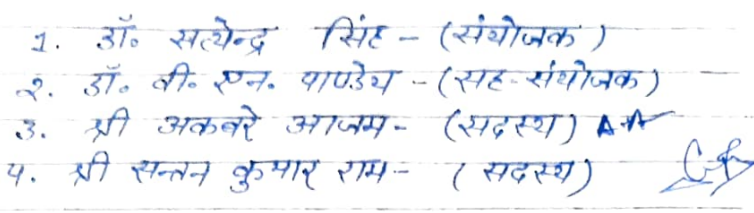 1. डॉ. सत्येन्द्र सिंह - (संयोजक)
२. डॉ. वी. एन. पाण्डेय - (सह-संयोजक)
3. श्री अकबरे आजम - (सदस्य)
५. श्री सन्तन कुमार राम - (सदस्य)